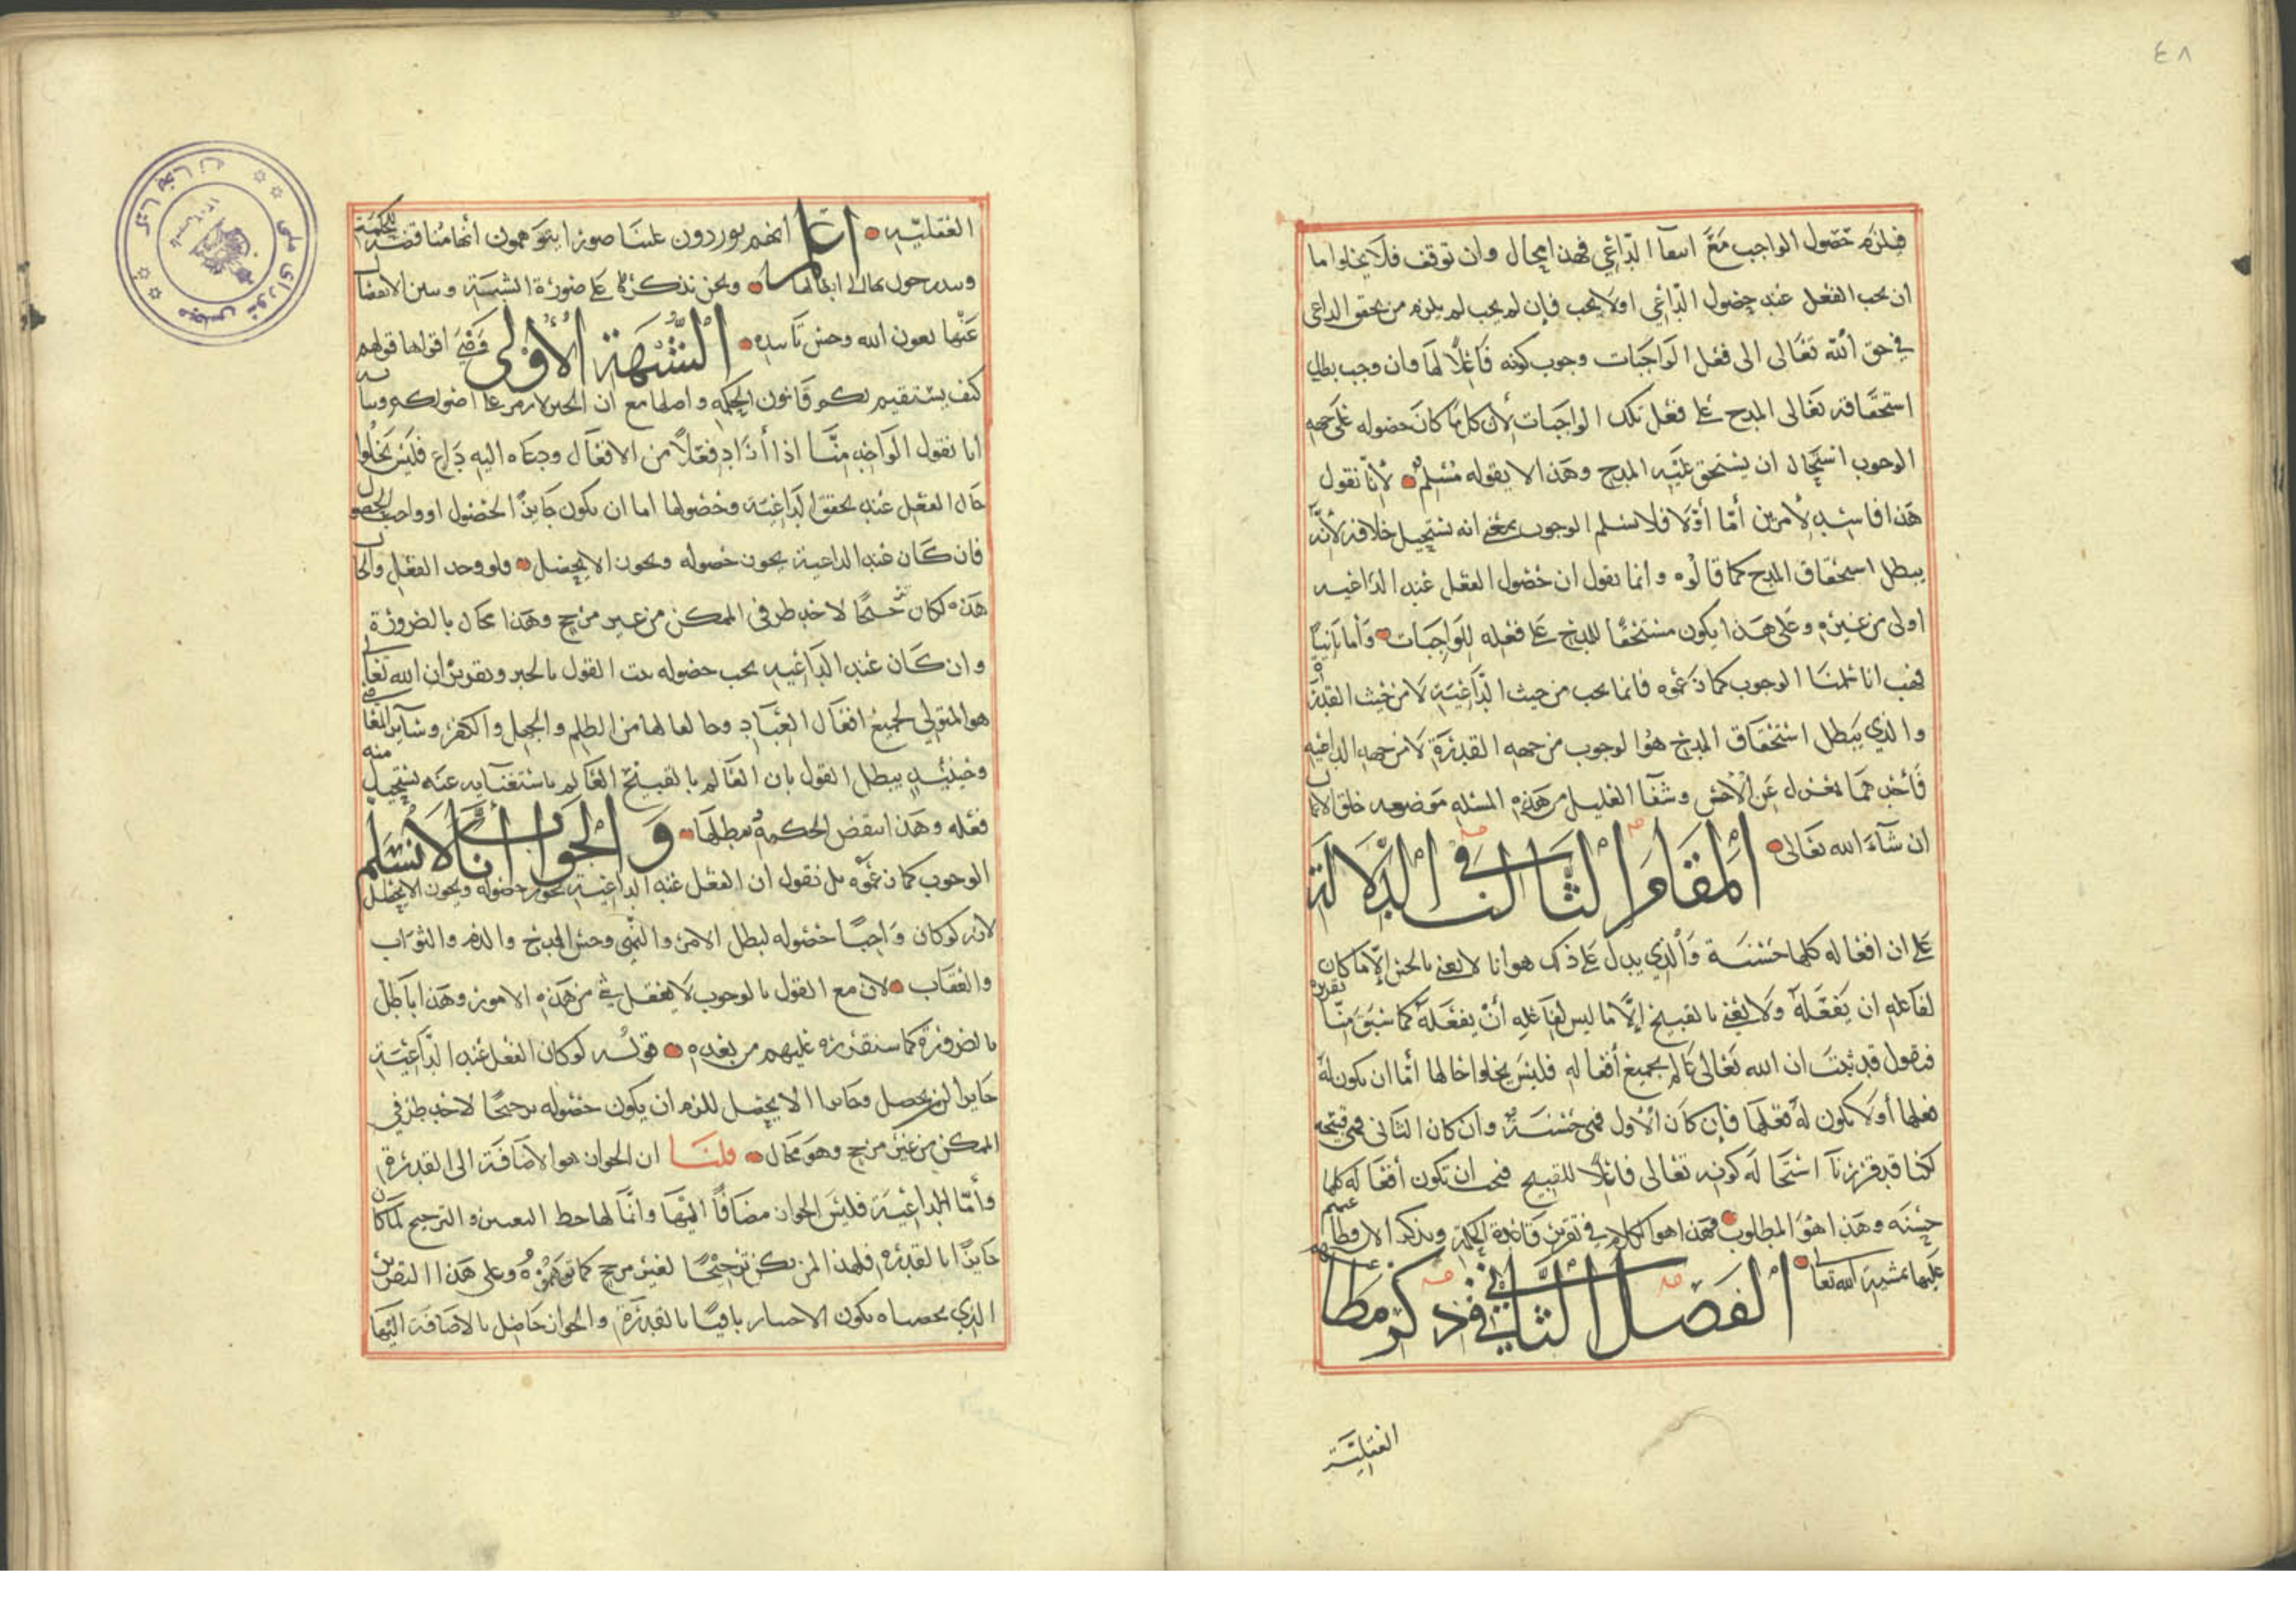 ٤٨
فيلزم حصول الواجب مع انتفآ الداعي فهذا محال وان توقف فلا يخلوا اما
ان يجب الفعل عند حصول الداعي اولا يجب فإن لم يجب لم يلزم من تحقق الداعي
في حق الله تعالى الى فعل الواجبات وجوب كونه فاعلًا لها وان وجب بطل
استحقاقه تعالى المدح على فعل تلك الواجبات لأن كل ما كان حصوله على جهه
الوجوب استحال ان يستحق عليه المدح وهذا لا يقوله مُسْلم لأنا نقول
هذا فاسد لأمرين أمّا أوّلا فلا نسلم الوجوب بمعنى انه يستحيل خلافه لأنه
يبطل استحقاق المدح كما قالوه وانما نقول ان حصول الفعل عند الداعيه
اولى من غيره وعلى هذا يكون مستحقًا للمدح على فعله للواجبات وأما ثانيًا
فهب انا سلمنا الوجوب كما زعموه فانما يجب من حيث الدّاعية لا من حيث القدرة
والذي يبطل استحقاق المدح هو الوجوب من جهه القدرة لا من جهه الداعيه
فأحدهما بمعزل عن الآخر وشفآ الغليل من هذه المسئله موضعه خلق الاعمال
ان شآء الله تعالى المقام الثالث في الدلالة
على ان افعاله كلها حسنة والذي يدل على ذلك هو انا لا نعني بالحسن إلّا ما كان
لفاعله ان يفعله ولا نعني بالقبيح إلّا ما ليس لفاعله أنْ يفعله كما سبق منّا تقريره
فنقول قد ثبت ان الله تعالى عالم بجميع أفعاله فليس يخلوا حالها أمّا ان يكون له
فعلها أولا يكون له فعلها فإن كان الأول فهي حسنة وان كان الثاني فهي قبيحه
لكنا قد قررنآ استحالة كونه تعالى فاعلًا للقبيح فيجب ان تكون أفعاله كلها
حسنه وهذا هو المطلوب فهذا هو الكلام في تقرير قاعدة الحكمة ويذكر الان مطاعنهم
عليها بمشية الله تعالى الفصل الثاني في ذكر مطاعنهم
العقليّة
العقليّه اعلم انهم يوردون علينا صورا يتوهمون أنها مناقضة للحكمة
ويتدرجون بها الى ابطالها ونحن نذكرها على صورة الشبهة ونبين الانفصال
عنها بعون الله وحسن تأييده الشُّبْهَة الأولى وهي اقواها قولهم
كيف يستقيم لكم قانون الحكمه واصلها مع ان الجبر لازم على اصولكم وبيانه
انا نقول الواحد منّا اذا أراد فعلًا من الافعال ودعاه اليه داع فليس يخلوا
حال الفعل عند تحقق الداعية وحصولها اما ان يكون جايز الحصول او واجب الحصول
فان كان عند الداعية يجوز حصوله ويجوز الا يحصل فلو وجد الفعل والحال
هذه لكان ترجيحًا لاحد طرفي الممكن من غير مرجح وهذا محال بالضرورة
وان كان عند الداعيه يجب حصوله ثبت القول بالجبر وتقرير ان الله تعالى
هو المتولي لجميع افعال العباد وخالقا لها من الظلم والجهل والكفر وسآير المعاصي
وحينئذ يبطل القول بان العالم بالقبيح العالم باستغنآيه عنه يستحيل منه
فعله وهذا ينقض الحكمة يبطلها والجواب أنّا لا نُسلم
الوجوب كما زعموه بل نقول ان الفعل عند الداعية يجوز حصوله ويجوز الا يحصل
لانه لو كان واجبًا حصوله لبطل الامر والنهي وحسن المدح والذم والثواب
والعقاب لان مع القول بالوجوب لا يعقل شي من هذه الامور وهذا باطل
بالضرورة كما سنقرره عليهم من بعده قوله لو كان الفعل عند الدّاعية
جايزا ان يحصل وجايزا الا يحصل للزم ان يكون حصوله ترجيحًا لاحد طرفي
الممكن من غير مرجح وهو محال قلنا ان الجواز هو الاضافة الى القدرة
وأمّا الداعية فليس الجواز مضافًا اليها وانّما لها حظ التعيين والترجيح لما كان
جايزًا بالقدرة فلهذا لم يكن ترجيحًا لغير مرجح كما توهموُه وعلى هذا التقرير
الذي لخصناه يكون الاختيار باقيًا بالقدرة والجواز حاصل بالاضافة اليها